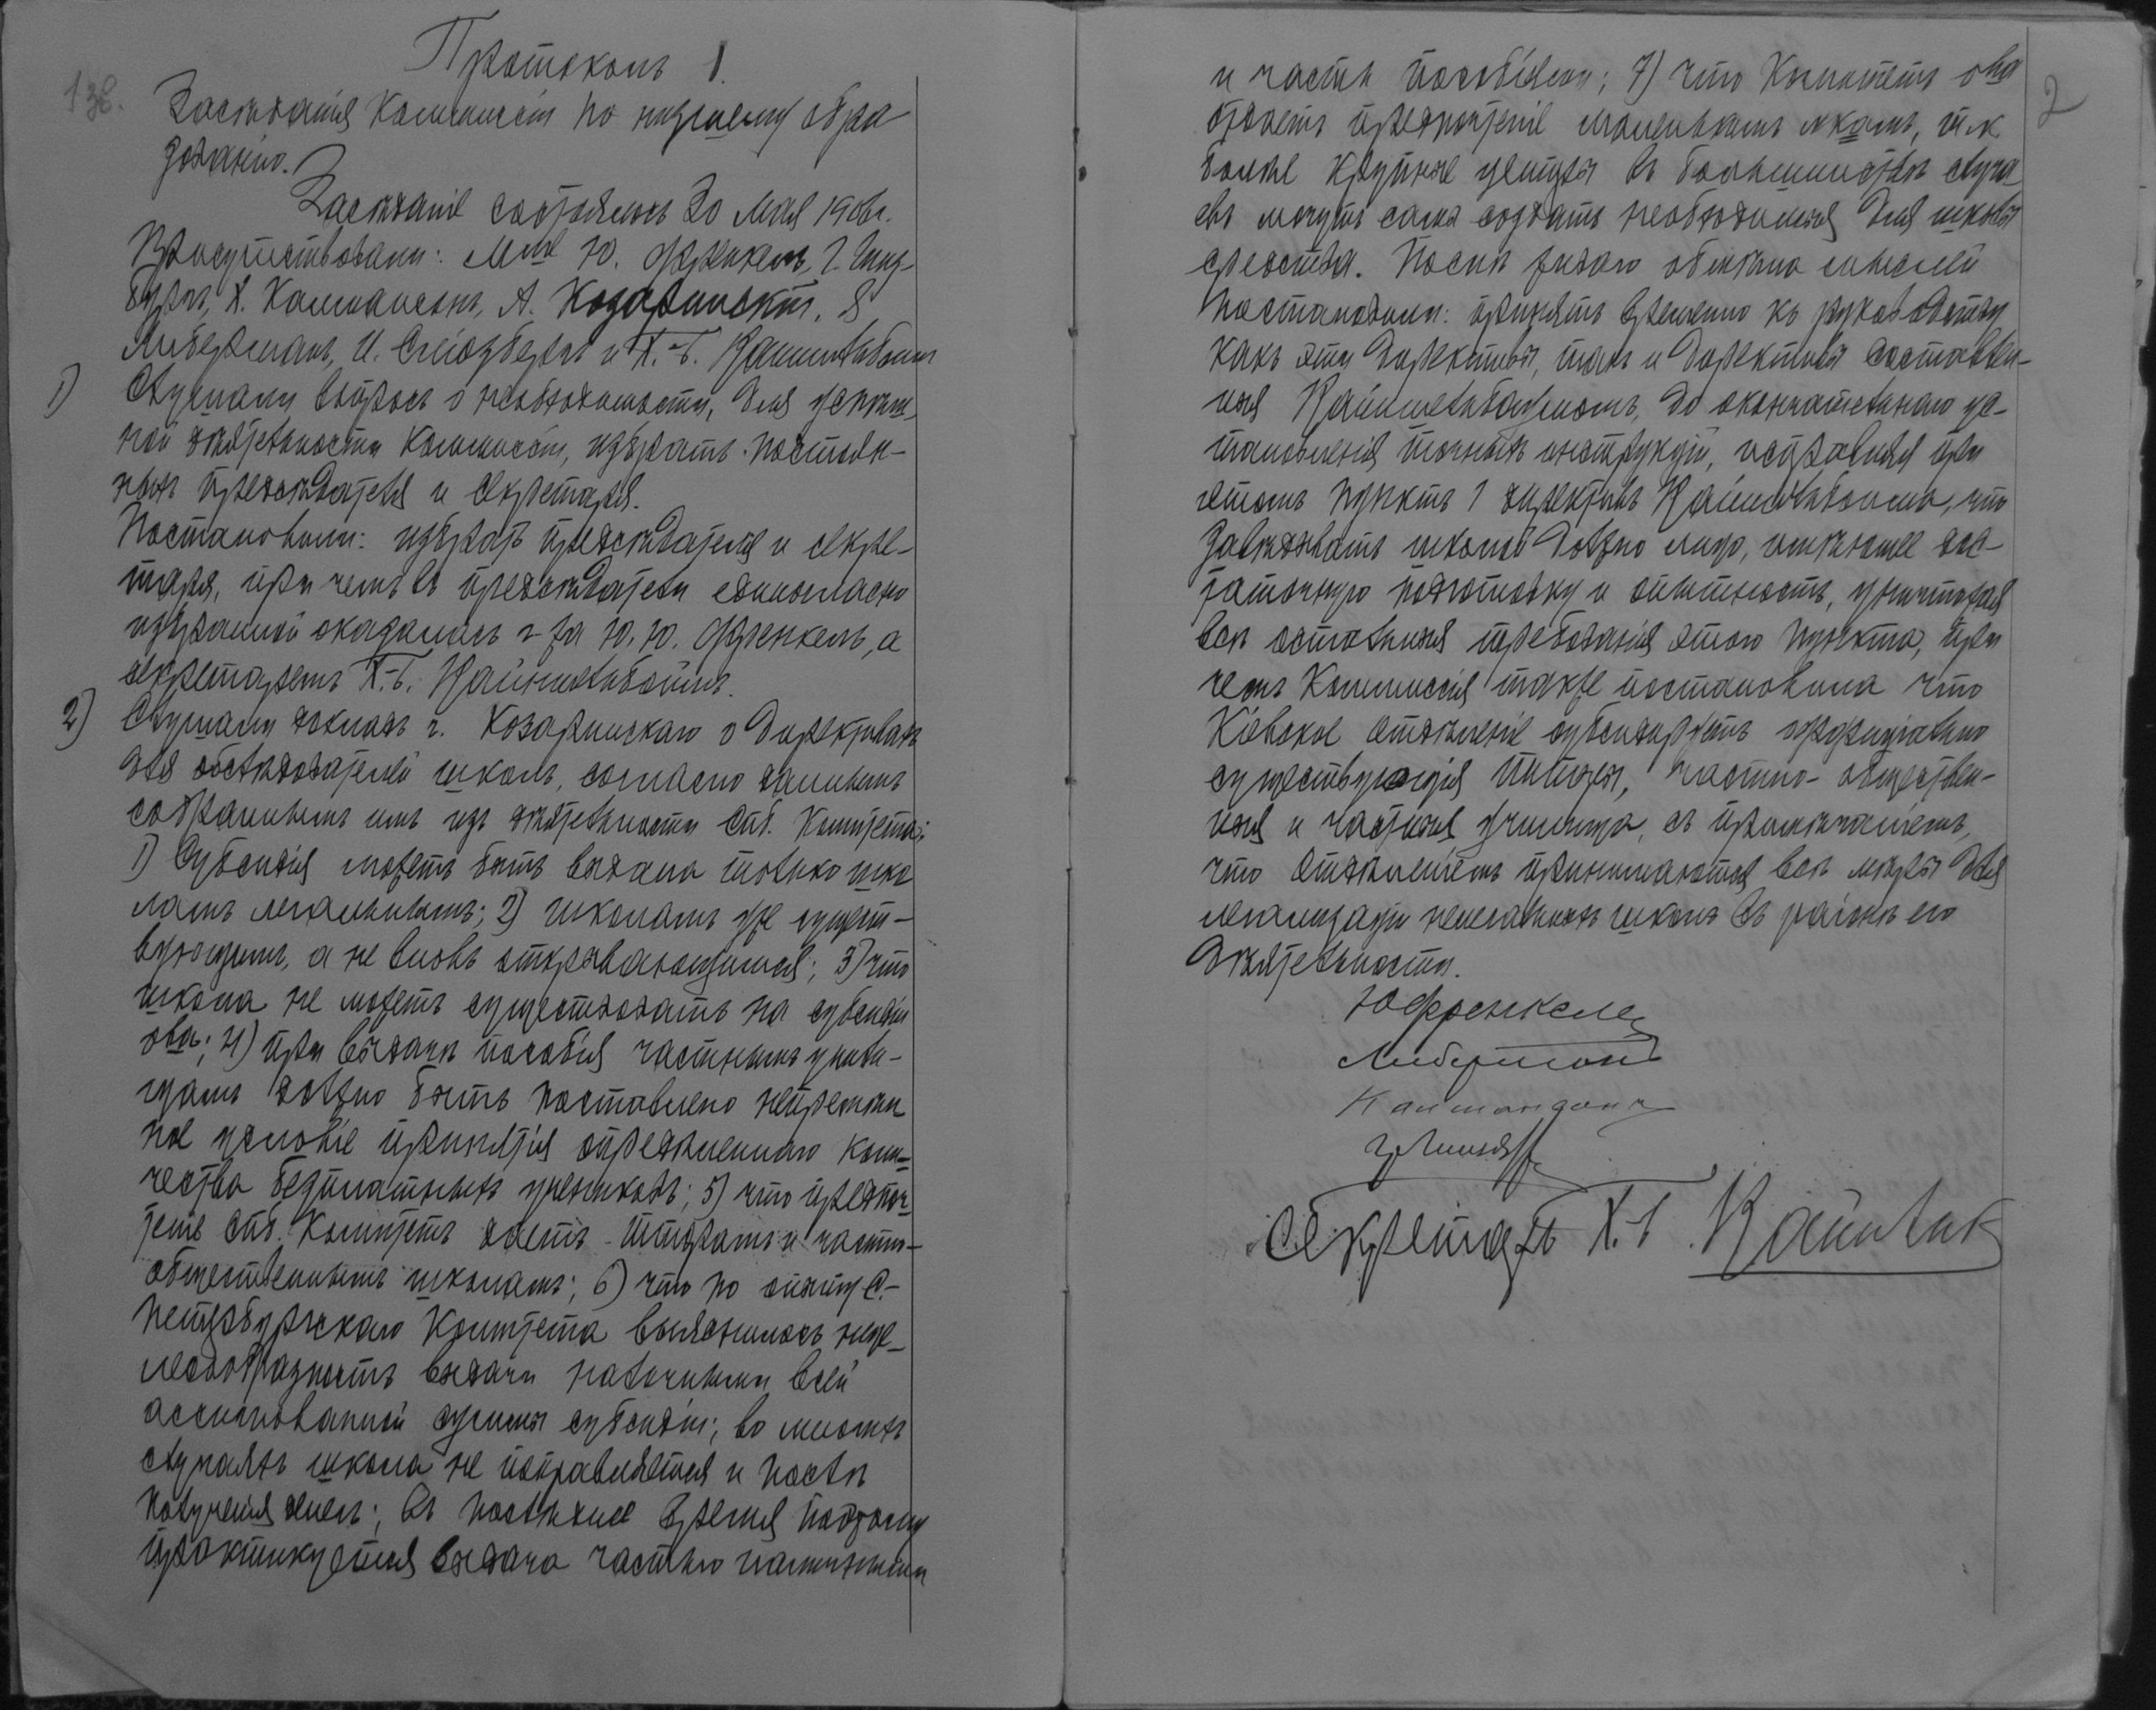 Протоколъ 1.
13в.
Засѣданія Коммиссіи по низшему обра
зованію.
Засѣданіе состоялось 20 Мая 1906г.
Присутствовали: М-me Ю. Френкель, Г. Гинз-
бургъ, Х. Калмансонъ, А. Козаринскій, Я
Либерманъ, И. Сліозбергъ и Х.-Б.
1) Слушали вопросъ о необходимости, для успѣш-
ной дѣятельности Коммиссіи, избрать постоян-
ныхъ предсѣдателя и секретаря.
Постановили: избрать предсѣдателя и секре-
таря, при чемъ въ предсѣдатели единогласно
избранной оказалась г-жа Ю. Ю. Френкель, а
секретаремъ Х.-Б.
2) Слушали докладъ г. Козаринскаго о директивахъ
для обслѣдователей школъ, согласно даннымъ
собраннымъ имъ изъ дѣятельности Спб. Комитета:
1) Субсидія можетъ быть выдана только шко
ламъ легальнымъ; 2) школамъ уже сущест-
вующимъ, а не вновь открывающимся; 3) что
школа не можетъ существовать на субсидіи
ова; 4) при выдачѣ пособія частнымъ учили-
щамъ должно быть поставлено непремѣн
ное условіе принятія опредѣленнаго коли-
чества безплатныхъ учениковъ; 5) что предпоч-
теніе Спб. Комитетъ даетъ Т.Торамъ и частно-
общественнымъ школамъ; 6) что по опыту С.-
Петербургскаго Комитета выяснилось неце-
лесообразность выдачи наличными всей
ассигнованной суммы субсидіи; во многихъ
случаяхъ школа не поправляется и послѣ
полученія денегъ; въ послѣднее время поэтому
практикуется выдача частью наличными
2
и частью пособіями; 7) что Комитетъ ова
отдаетъ предпочтеніе маленькимъ м-камъ, т.к
болѣе крупные центры въ большинствѣ случа
евъ могутъ сами создать необходимыя для школы
средства. Послѣ живого обмѣна мыслей
постановили: принять временно къ руководству
какъ эти директивы, такъ и директивы составлен-
ныя до окончательнаго ус-
тановленія точныхъ инструкцій, исправляя при
этомъ пунктъ 1 директивъ что
завѣдывать школой должно лицо, имѣющее дос-
таточную подготовку и опытность, уничтожая
всѣ остальныя требованія этого пункта, при
чемъ Коммиссія также постановила что
Кіевское Отдѣленіе субсидируетъ оффиціально
существующія Т.Торы, частно-обществен-
ныя и частныя училища, съ примѣчаніемъ,
что Отдѣленіемъ принимаются всѣ мѣры для
легализаціи нелегальныхъ школъ въ районѣ его
дѣятельности.
Ю Френкель
Либерманъ
Калмансонъ
Секретарь Х.-Б.